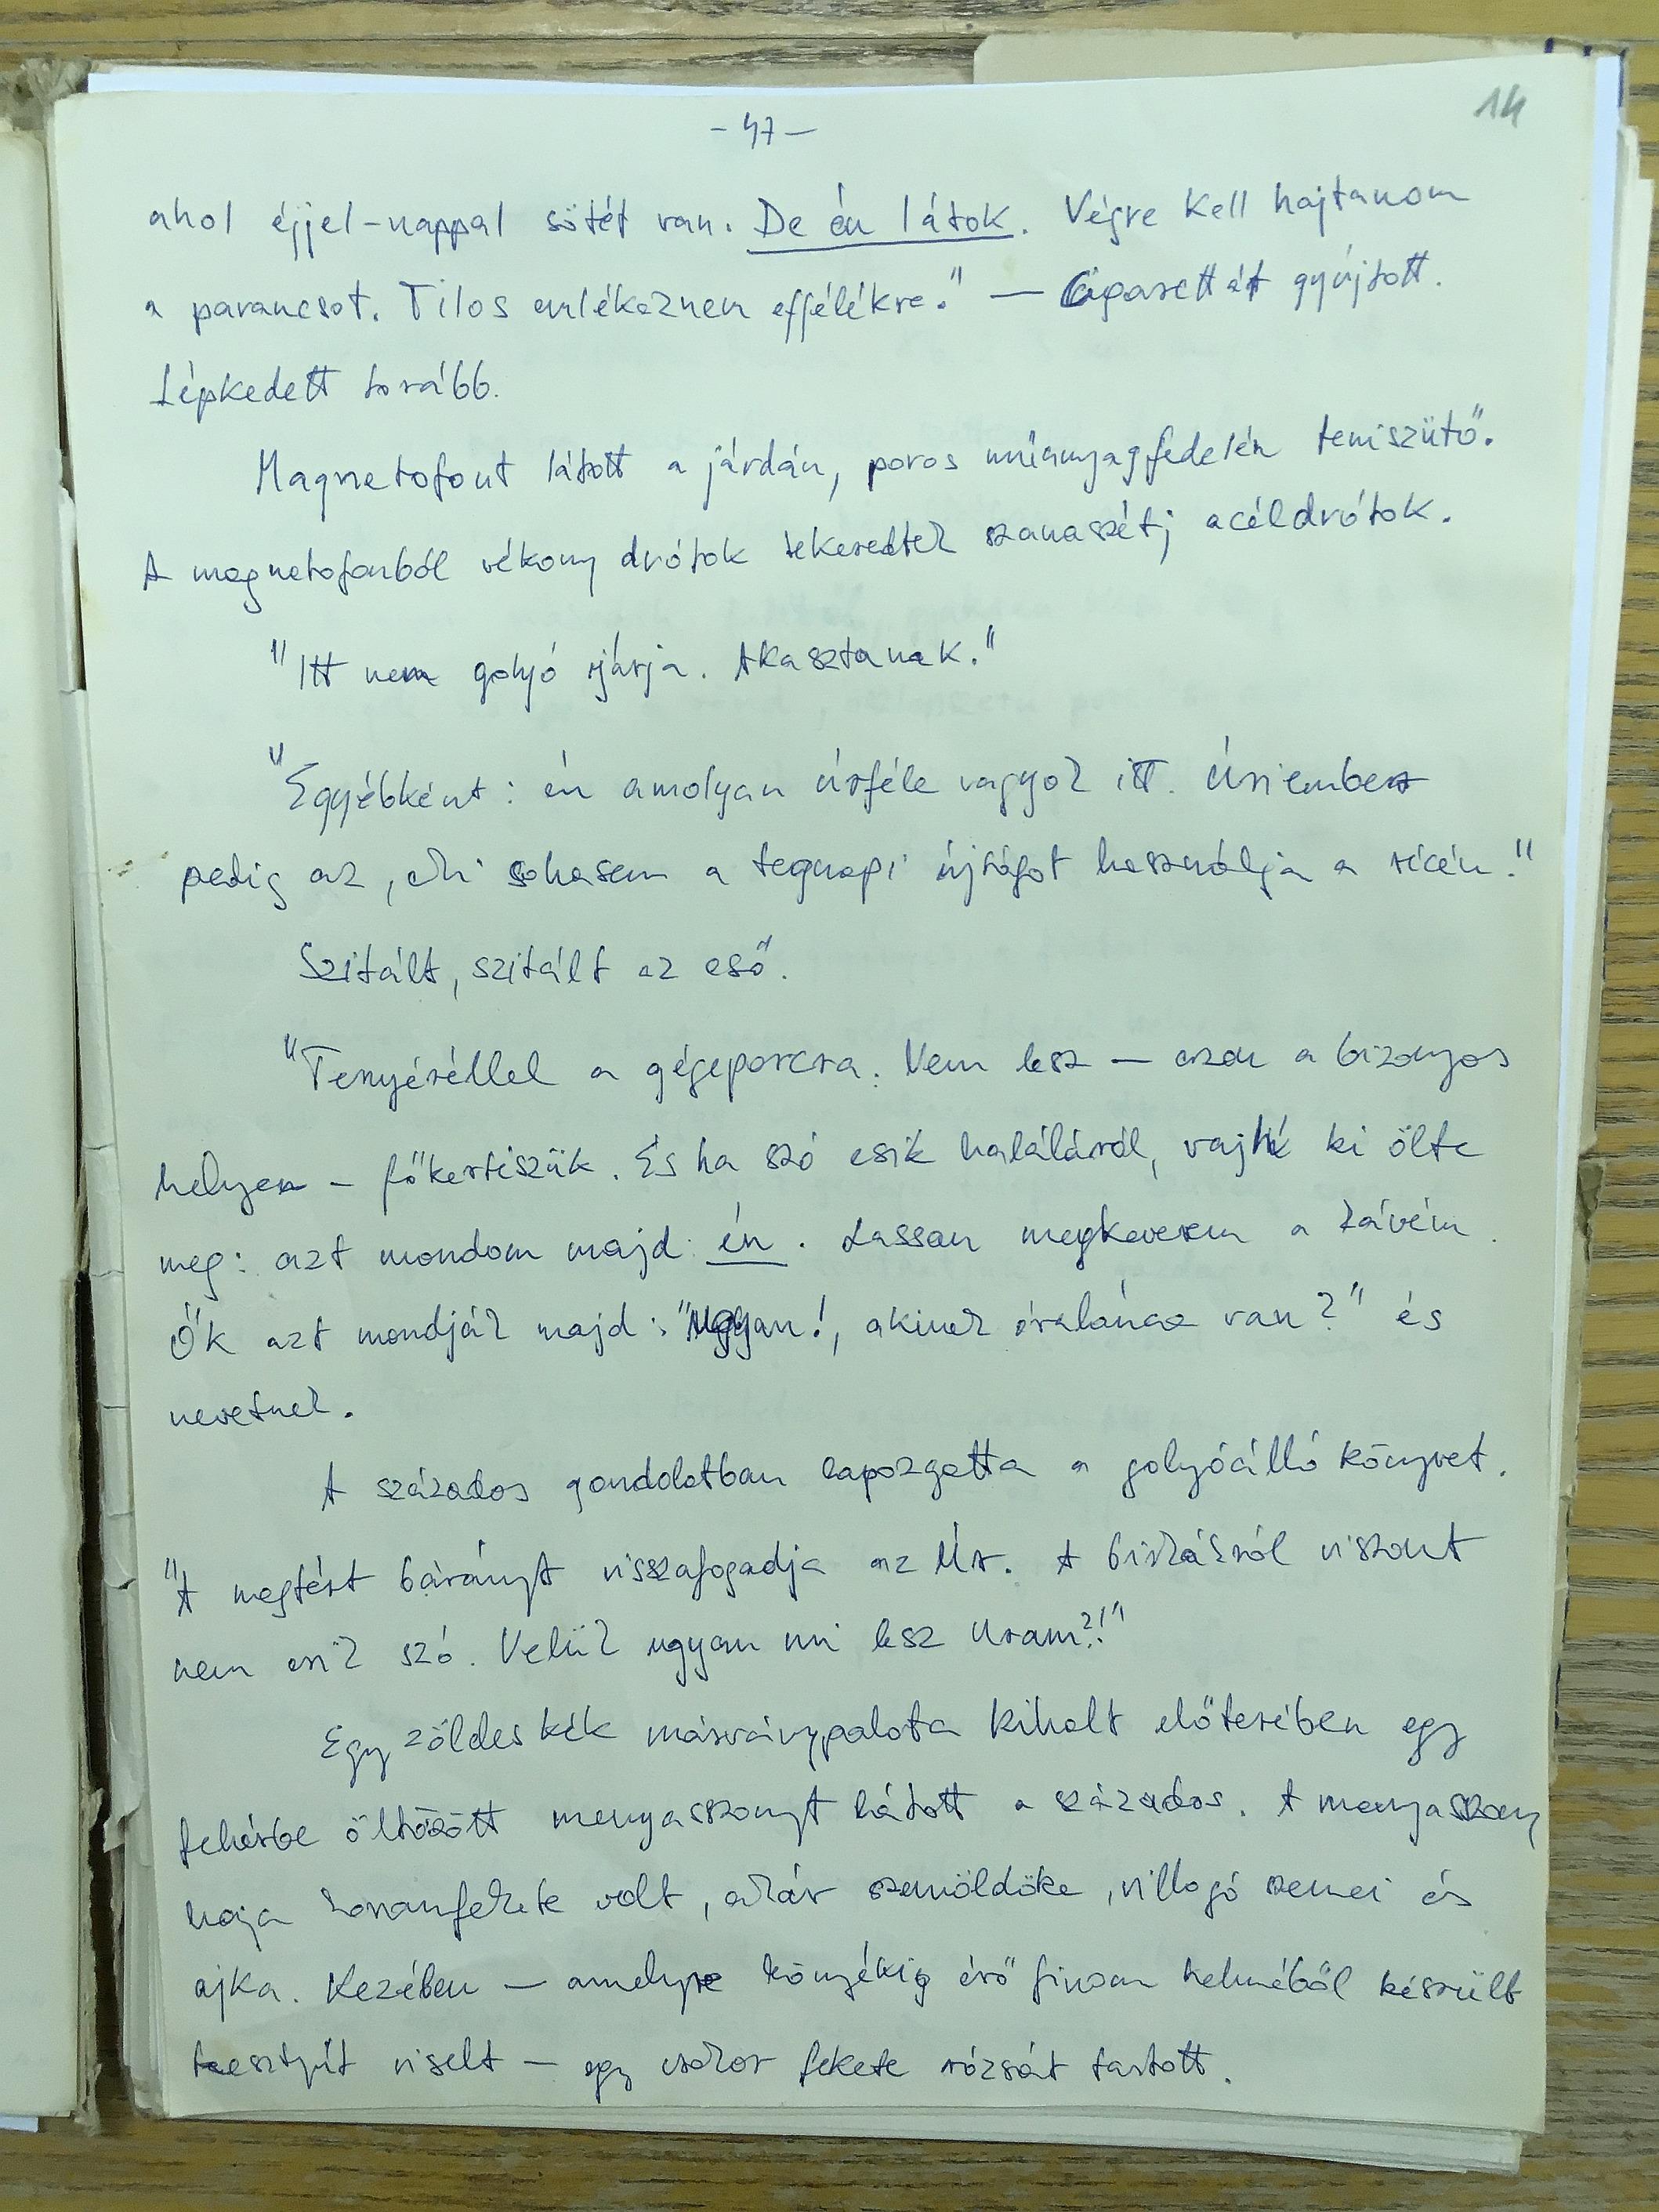 14
- 47 -
ahol éjjel-nappal sötét van. De én látok. Végre kell hajtanom
a parancsot. Tilos emlékeznem effélékre." — Cigarettát gyújtott.
Lépkedett tovább.
Magnetofont látott a járdán, poros műanyagfedelén teniszütő.
A magnetofonból vékony drótok tekeredtek szanaszét; acéldrótok.
"Itt nem golyó járja. Akasztanak."
"Egyébként: én amolyan úrféle vagyok itt. Úriember
pedig az, aki sohasem a tegnapi újságot használja a vécén."
Szitált, szitált az eső.
"Tenyéréllel a gégeporcra. Nem lesz — azon a bizonyos
helyen – főkertészük. És ha szó esik haláláról, vajh ki ölte
meg: azt mondom majd: én. Lassan megkeverem a kávém.
Ők azt mondják majd: "Ugyan!, akinek óralánca van?" és
nevetnek.
A százados gondolatban lapozgatta a golyóálló könyvet.
"A megtért bárányt visszafogadja az Úr. A birkákról viszont
nem esik szó. Velük ugyan mi lesz Uram?!"
Egy zöldeskék márványpalota kihalt előterében egy
fehérbe öltözött menyasszonyt látott a százados. A menyasszony
haja koromfekete volt, akár szemöldöke, villogó szemei és
ajka. Kezében — amelyre könyékig érő finom kelméből készült
kesztyűt viselt — egy csokor fekete rózsát tartott.